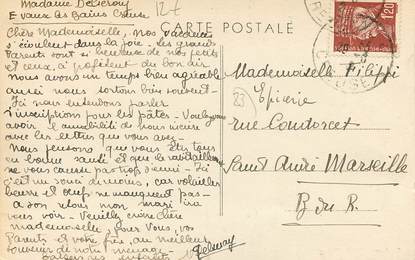 Madame Delseray
Evaux les Bains Creuse
127
CARTE POSTALE
Chère Mademoiselle, nos vacances
s'écoulent dans la joie - les grands
Parents sont si heureux de nos petits
et ceux-ci profitent du bon air
nous avons un temps bien agréable
aussi nous sortons bien souvent -
Ici nous entendons parler
d'inscriptions pour les pâtes - Voulez-vous
avoir l'amabilité de nous inscrire
avec les lettres que vous avez -
nous pensons que vous êtes tous
en bonne santé et que le ravitaillement
ne vous cause pas trop d'ennui - Ici
c'est un souci de moins, car volailles
beurre et oeuf ne manquent pas -
A son retour mon mari ira
vous voir - Veuillez croire chère
mademoiselle, pour vous, vos
Parents et votre frère, au meilleur
souvenir de notre ménage -
Delseray
1,20
CREUSE
Mademoiselle Filippi
23
Epicerie
rue Condorcet
Saint André Marseille
B du R.